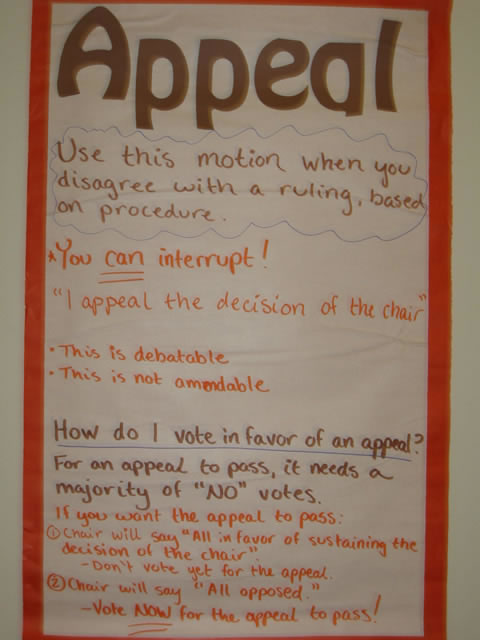 Appeal
Use this motion when you
disagree with a ruling, based
on procedure.
*You can interrupt!
"I appeal the decision of the chair"
• This is debatable
• This is not amendable
How do I vote in favor of an appeal?
For an appeal to pass, it needs a
majority of "NO" votes.
If you want the appeal to pass:
① Chair will say "All in favor of sustaining the
decision of the chair".
- Don't vote yet for the appeal.
② Chair will say "All opposed."
- Vote NOW for the appeal to pass!